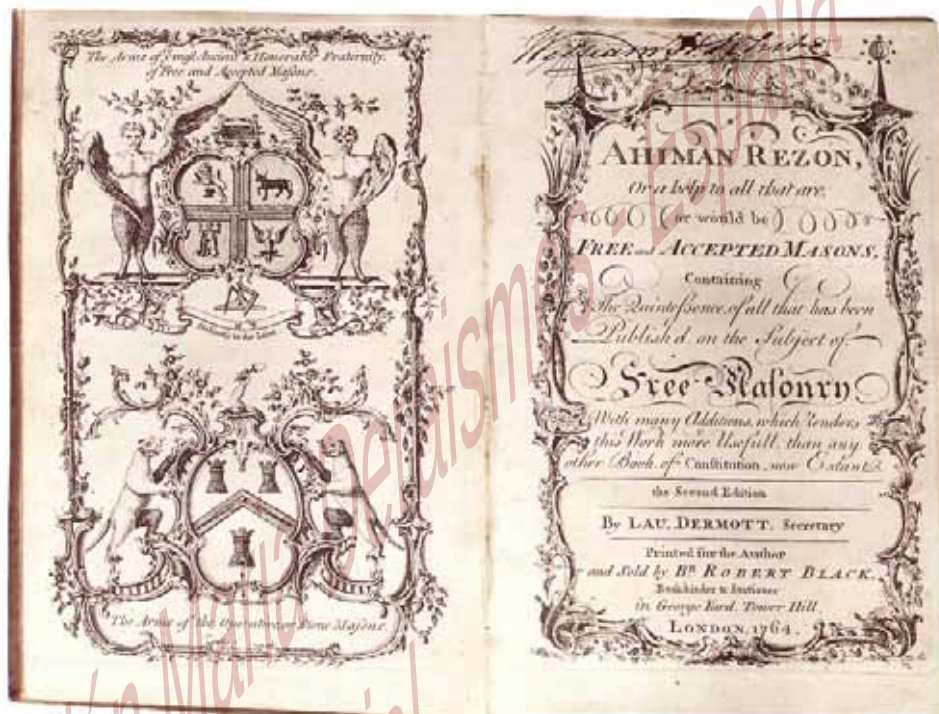 The Arms of yᵉ most Ancient & Honorable Fraternity,
of Free and Accepted Masons.
The Arms of the Operative or Stone Masons.
William H. White
AHIMAN REZON,
Or a help to all that are,
(or would be)
FREE and ACCEPTED MASONS,
Containing
The Quintessence of all that has been
Publish'd on the Subject of
Free-Masonry
With many Additions, which renders
this Work more Usefull, than any
other Book of Constitution, now Extant.
the Second Edition
By LAU. DERMOTT. Secretary
Printed for the Author
and Sold by Bʀ. ROBERT BLACK,
Bookbinder & Stationer
in George Yard, Tower Hill
LONDON, 1764.